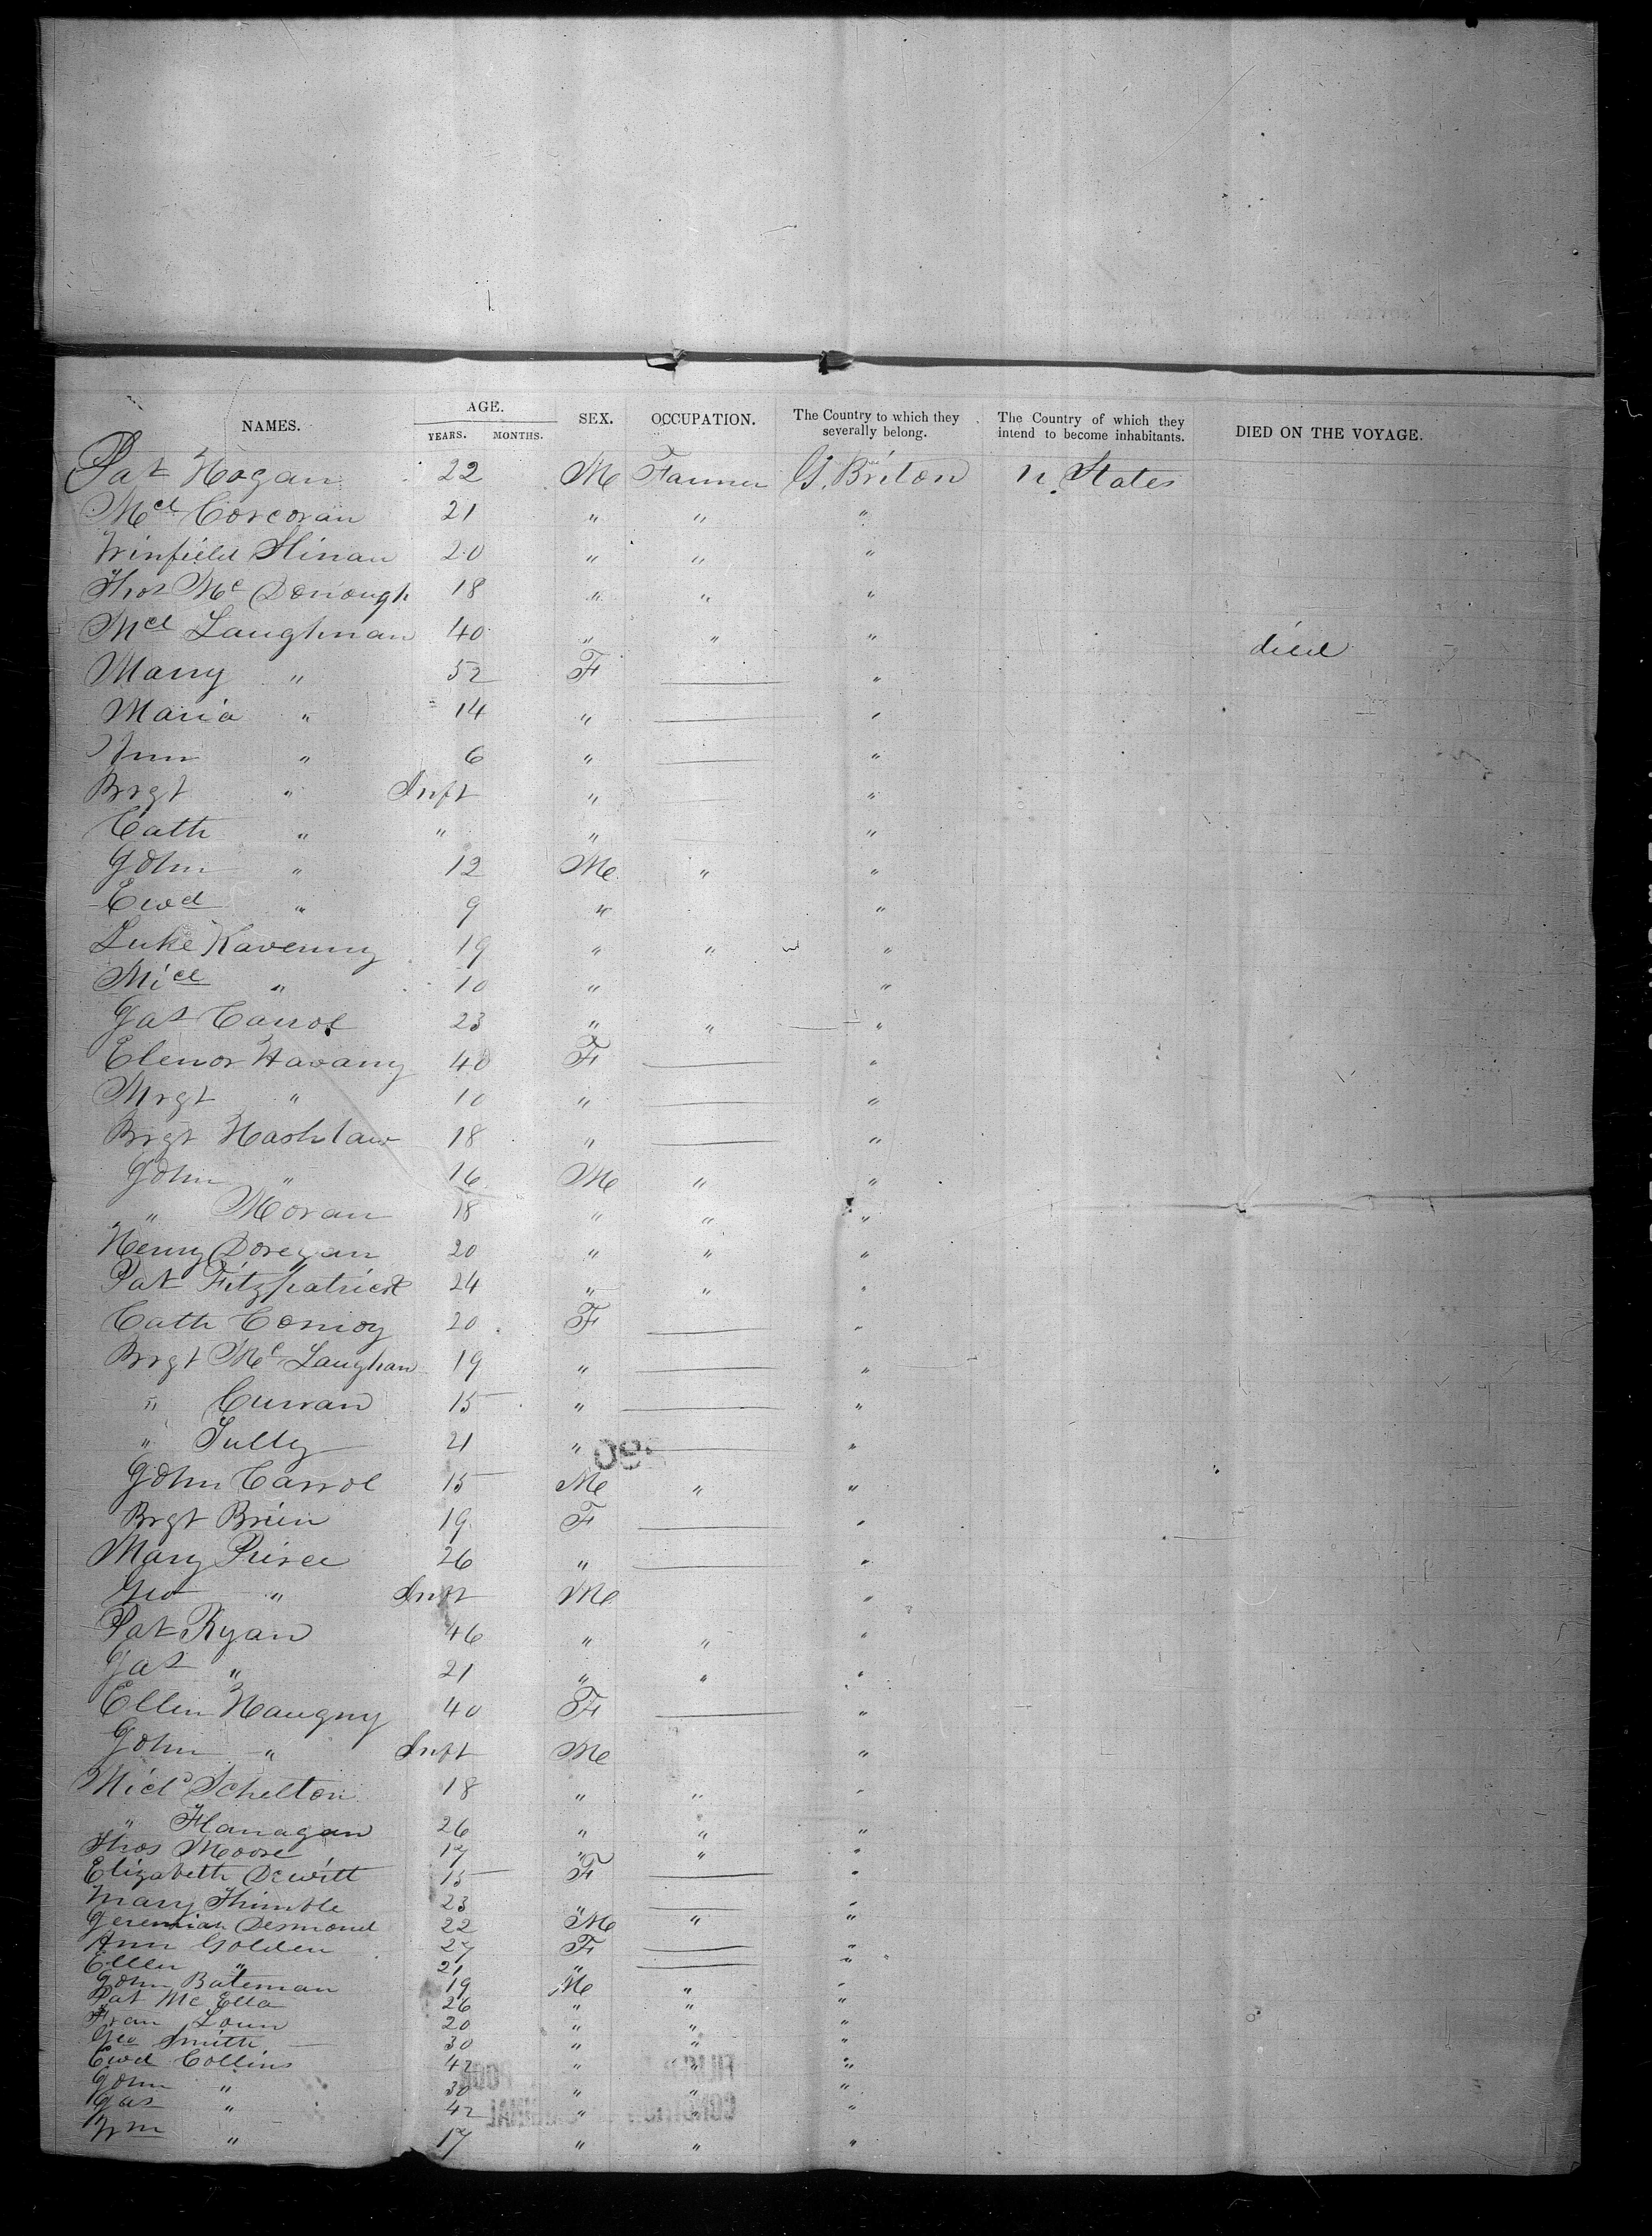 NAMES. AGE. YEARS. MONTHS. SEX. OCCUPATION. The Country to which they severally belong. The Country of which they intend to become inhabitants. DIED ON THE VOYAGE.
Pat Hogan 22 M Farmer G. Briton U. States
Mcl Corcoran 21 " " "
Winfield Hinan 20 " " "
Thos Mc Donough 18 " " "
Mcl Laughnan 40 " " " died
Marry " 52 F — "
Maria " 14 " — "
Ann " 6 " — "
Brgt " Inft " — "
Cath " " " — "
John " 12 M " "
Ewd " 9 " "
Luke Kavenny 19 " " "
Micl " 10 " "
Jas Carrol 23 " " "
Elenor Havany 40 F — "
Mrgt " 10 " — "
Brgt Hashlaw 18 " — "
John " 16 M " "
" Moran 18 " " "
Henry Doregan 20 " " "
Pat Fitzpatrick 24 " " "
Cath Conroy 20 F — "
Brgt Mc Laughan 19 " — "
" Curran 15 " — "
" Tully 21 " — "
John Carrol 15 M " "
Brgt Brien 19 F — "
Mary Peirce 26 " — "
Geo " Inft M "
Pat Ryan 46 " " "
Jas " 21 " " "
Ellen Haugny 40 F — "
John " Inft M "
Micl Schelton 18 " " "
" Flanagan 26 " " "
Thos Moore 17 " " "
Elizabeth Dewitt 15 F — "
Mary Thimble 23 " — "
Jeremiah Desmond 22 M " "
Ann Golden 27 F — "
Ellen " 21 " — "
John Bateman 19 M " "
Pat Mc Ella 26 " " "
Fran Loun 20 " " "
Geo Smith 30 " " "
Ewd Collins 42 " " "
John " 30 " " "
Jas " 42 " " "
Wm " 17 " " "